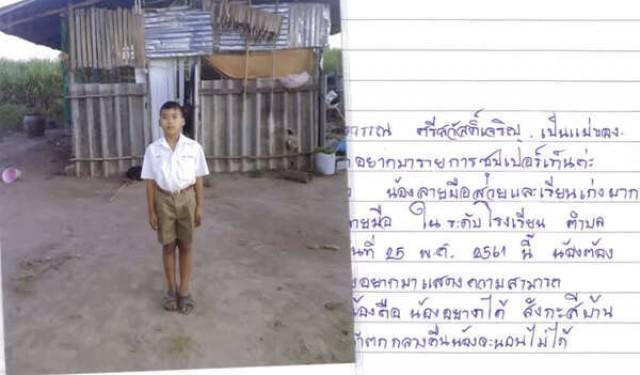 ศรีสวัสดิ์เจริญ. เป็นแม่ของ
อยากมารายการซุปเปอร์เท็นค่ะ
น้องลายมือสวยและเรียนเก่งมาก
ายมือ ในระดับโรงเรียน ตำบล
นที่ 25 พ.ค. 2561 นี้ น้องต้อง
งอยากมาแสดงความสามารถ
น้องคือ น้องอยากได้ สังกะสีบ้าน
ตกกลางคืนน้องจะนอนไม่ได้